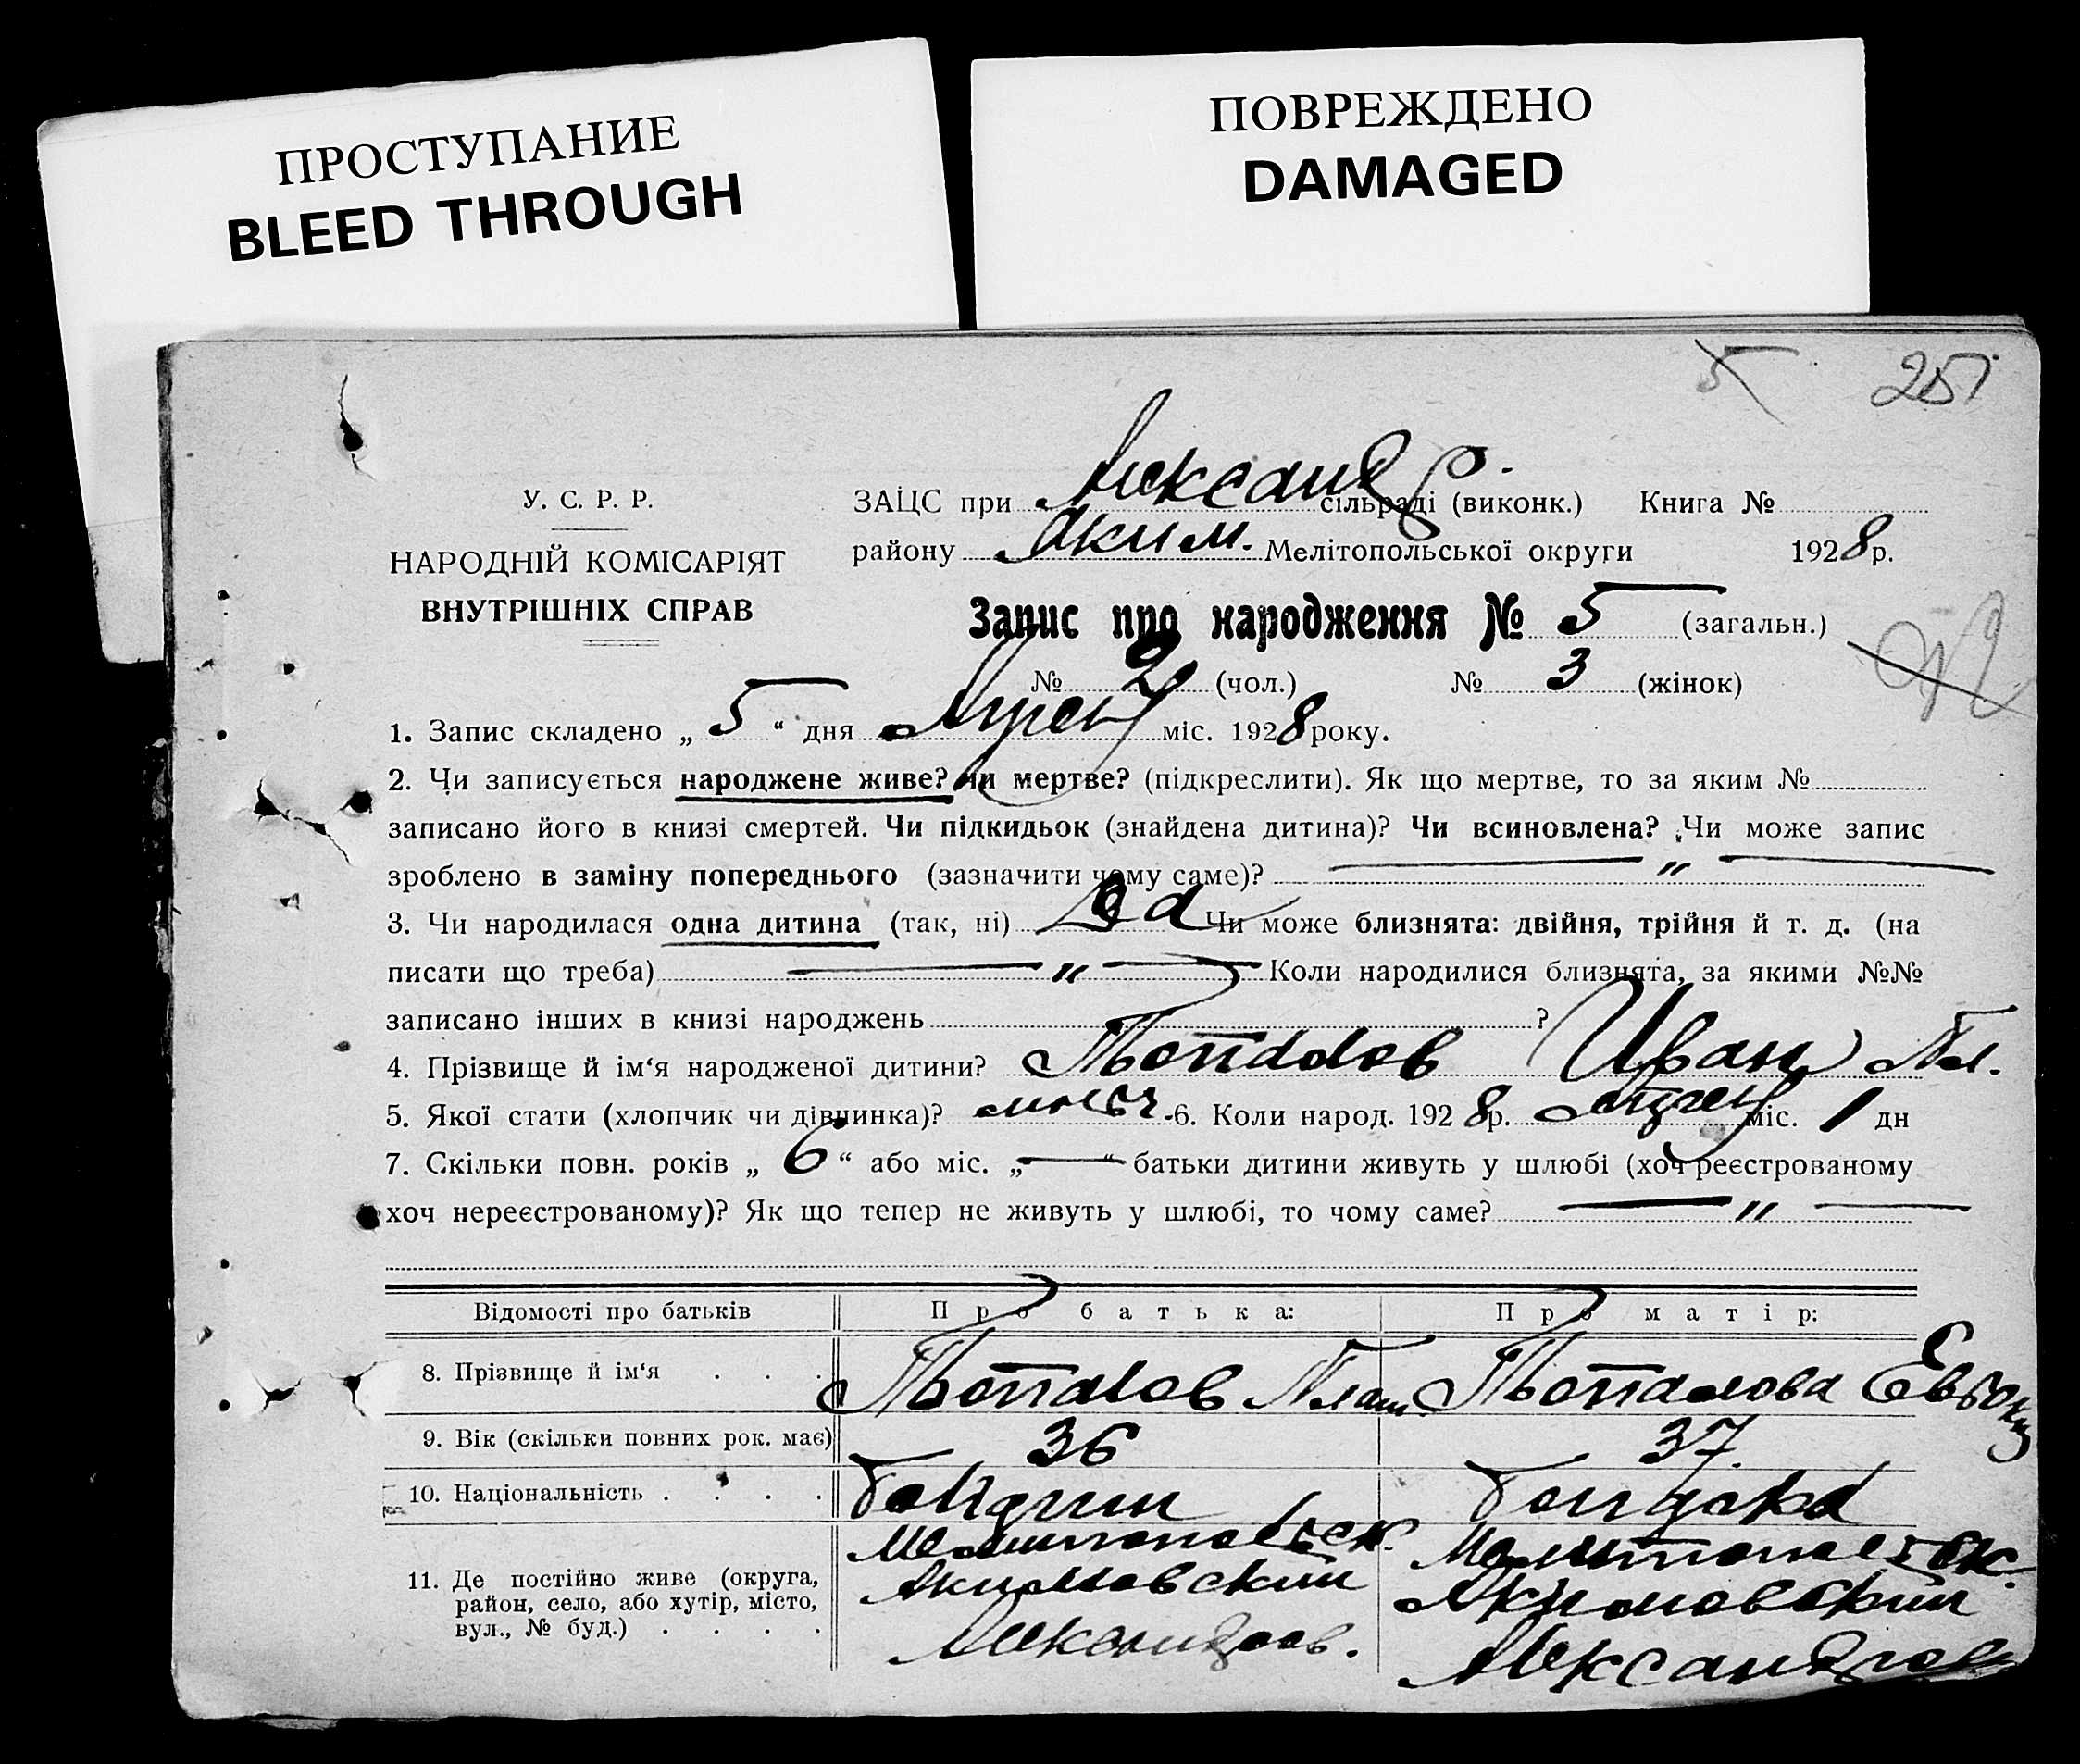 ПРОСТУПАНИЕ
BLEED THROUGH
ПОВРЕЖДЕНО
DAMAGED
5 251
У. С. Р. Р.
НАРОДНІЙ КОМІСАРІЯТ
ВНУТРІШНІХ СПРАВ
ЗАЦС при Александр. сільраді (виконк.) Книга №
району Аким. Мелітопольської округи 1928 р.
Запис про народження № 5 (загальн.)
№ 2 (чол.) № 3 (жінок)
1. Запис складено „ 5 “ дня міс. 1928 року.
2. Чи записується народжене живе? чи мертве? (підкреслити). Як що мертве, то за яким №
записано його в книзі смертей. Чи підкидьок (знайдена дитина)? Чи всиновлена? Чи може запис
зроблено в заміну попереднього (зазначити чому саме)? — „ —
3. Чи народилася одна дитина (так, ні) Чи може близнята: двійня, трійня й т. д. (на
писати що треба) — „ — Коли народилися близнята, за якими №№
записано інших в книзі народжень ?
4. Прізвище й ім‘я народженої дитини? Топалов Иван Пл.
5. Якої стати (хлопчик чи дівчинка)? 6. Коли народ. 1928 р. міс. 1 дн
7. Скільки повн. років „ 6 “ або міс. „ — “ батьки дитини живуть у шлюбі (хоч реєстрованому
хоч нереєстрованому)? Як що тепер не живуть у шлюбі, то чому саме? — „ —
Відомості про батьків Про батька: Про матір:
8. Прізвище й ім‘я . . . Топалов Плат. Топалова Евдоки
9. Вік (скільки повних рок. має) 36 37.
10. Національність . . . .
11. Де постійно живе (округа, район, село, або хутір, місто, вул., № буд.) . . . .
Мелитопольск. Мелитопольск.
Акимовский Акимовский
Александров. Александров